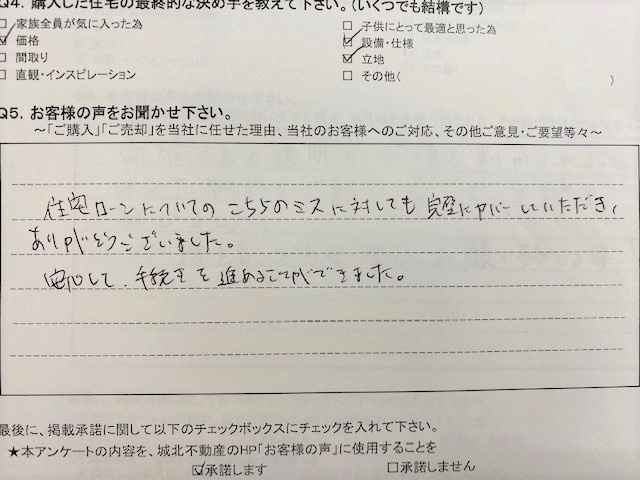 Q4. 購入した住宅の最終的な決め手を教えて下さい。(いくつでも結構です)
□ 家族全員が気に入った為 □ 子供にとって最適と思った為
☑ 価格 ☑ 設備・仕様
□ 間取り ☑ 立地
□ 直観・インスピレーション □ その他( )
Q5. お客様の声をお聞かせ下さい。
～「ご購入」「ご売却」を当社に任せた理由、当社のお客様へのご対応、その他ご意見・ご要望等々～
住宅ローンについての こちらのミスに対しても 完璧にカバーしていただき、
ありがとうございました。
安心して、手続きを進めることができました。
最後に、掲載承諾に関して以下のチェックボックスにチェックを入れて下さい。
★本アンケートの内容を、城北不動産のHP「お客様の声」に使用することを
☑承諾します □承諾しません